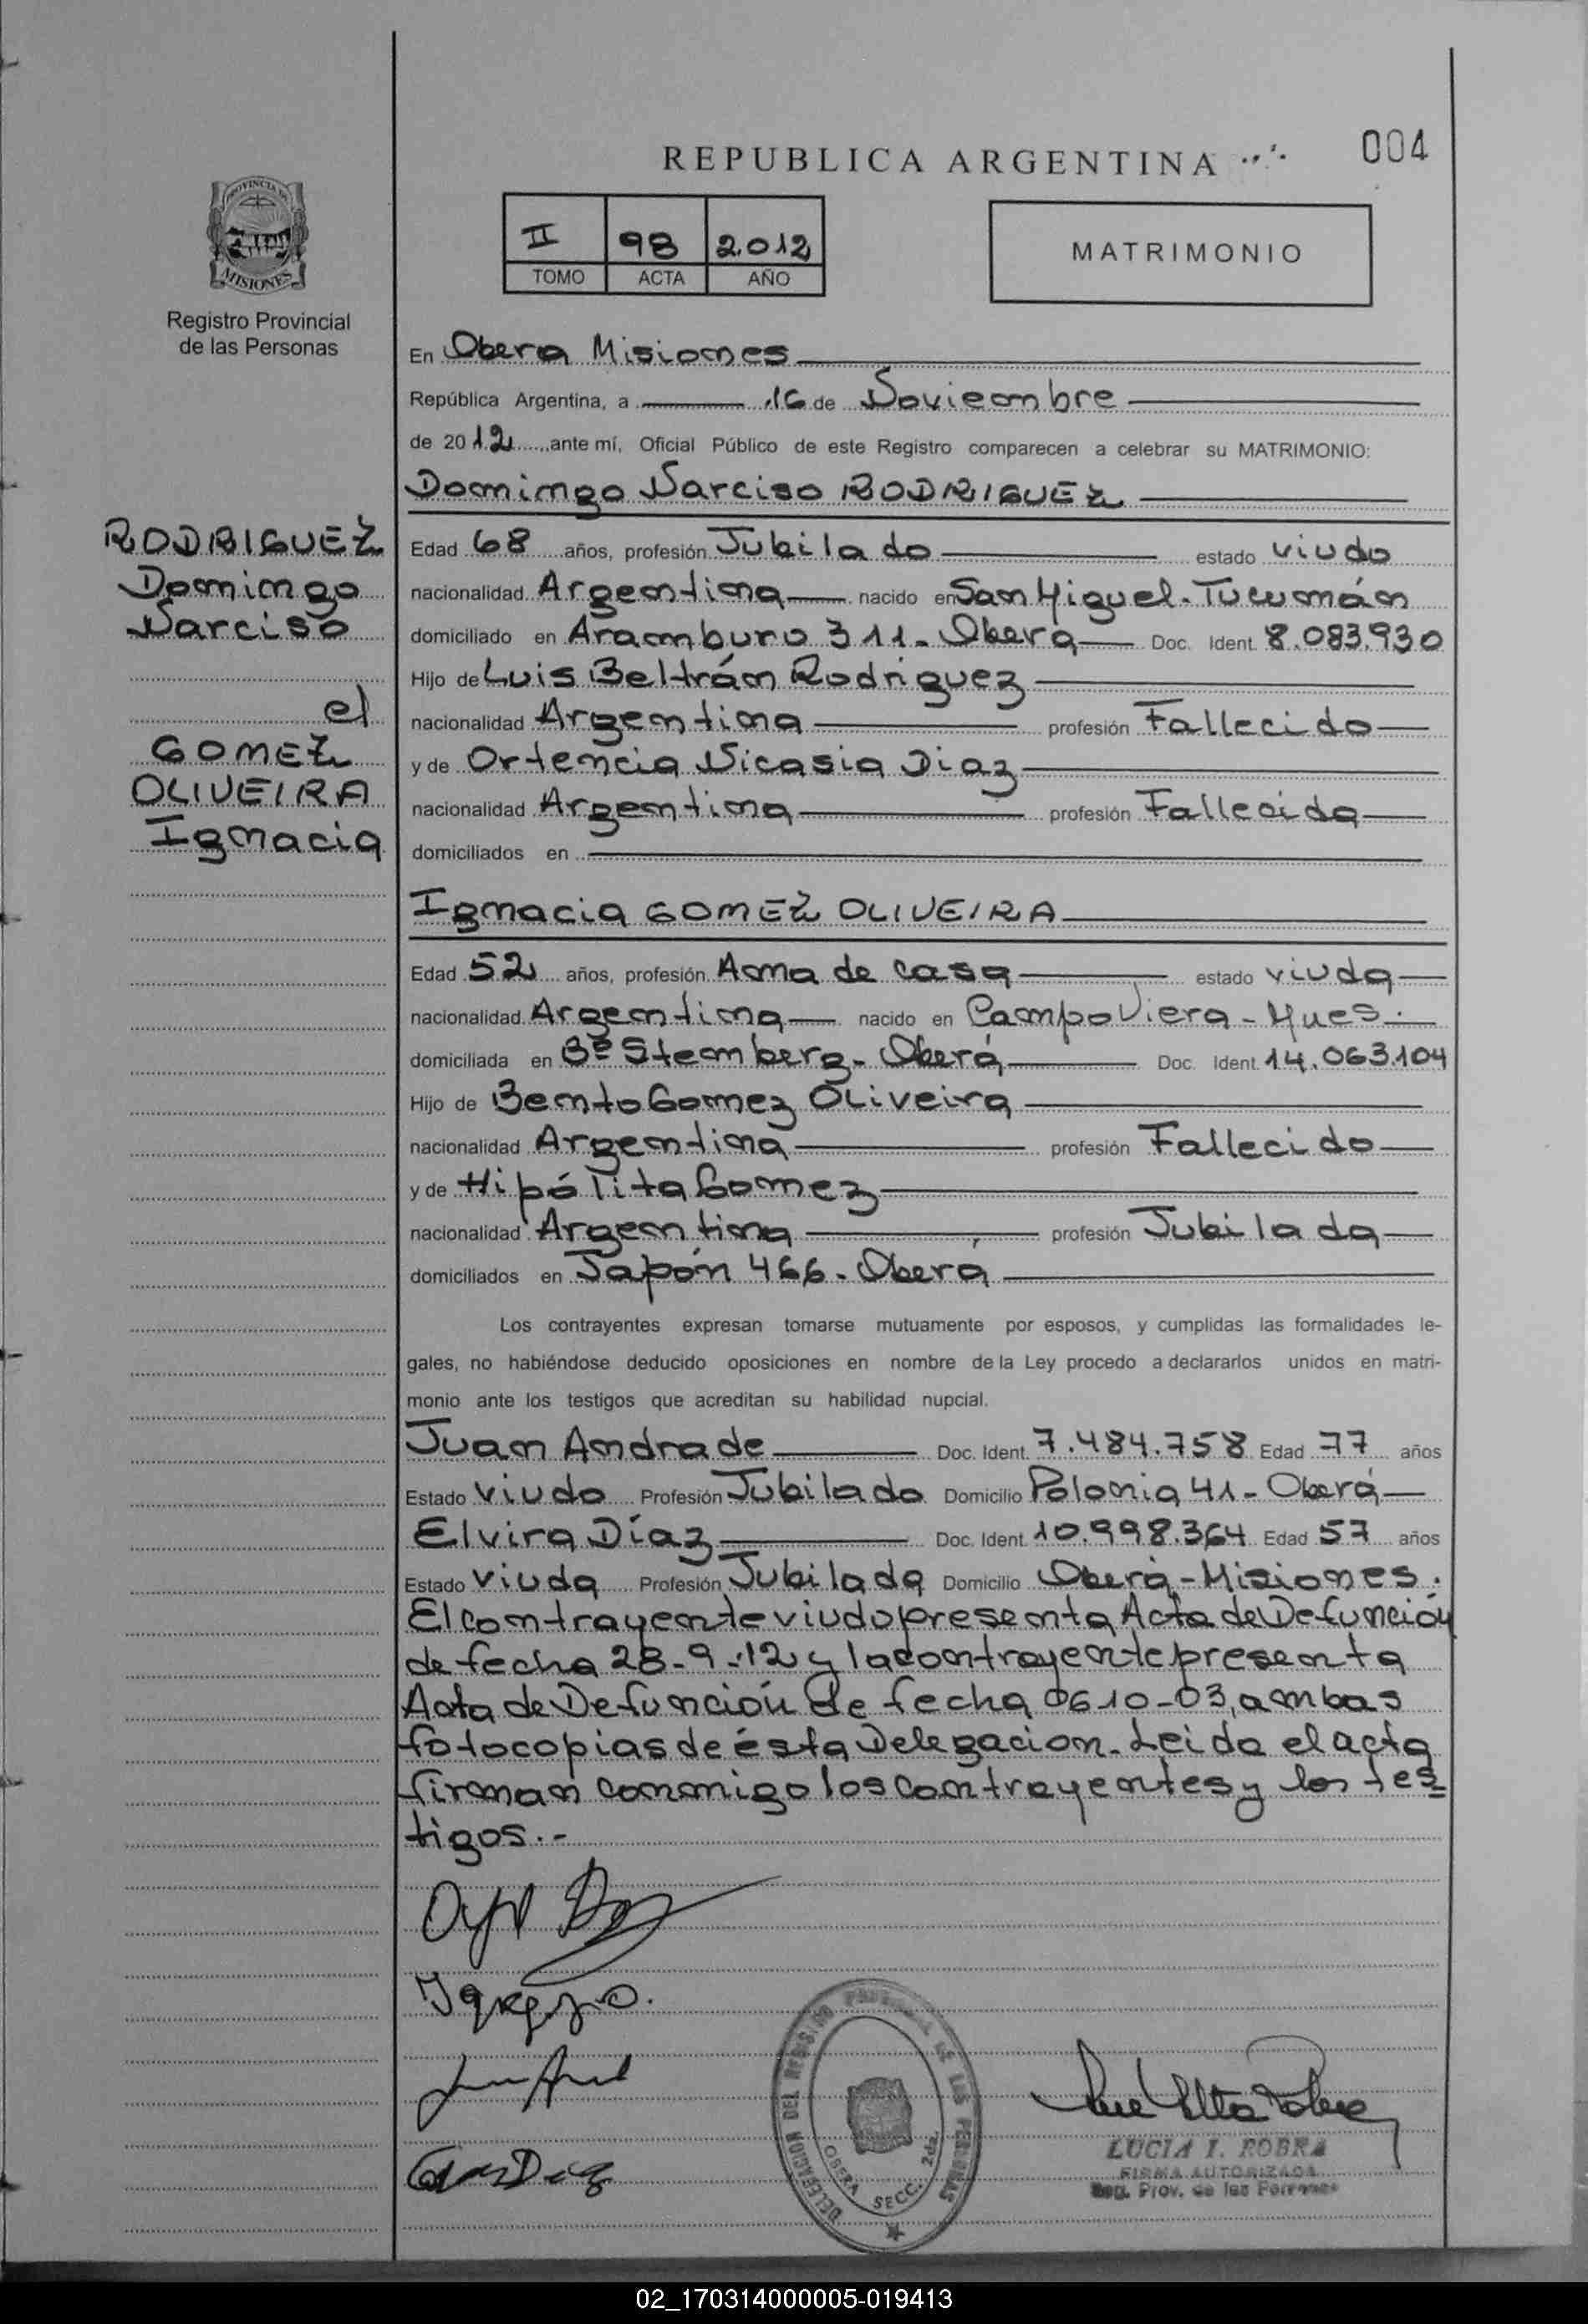 REPUBLICA ARGENTINA
004
PROVINCIA DE
MISIONES
Registro Provincial
de las Personas
II 98 2.012
TOMO ACTA AÑO
MATRIMONIO
En Obera Misiones
República Argentina, a 16 de Noviembre
de 2012 ante mí, Oficial Público de este Registro comparecen a celebrar su MATRIMONIO:
Domingo Narciso RODRIGUEZ
RODRIGUEZ
Domingo
Narciso
el
GOMEZ
OLIVEIRA
Ignacia
Edad 68 años, profesión Jubilado estado viudo
nacionalidad Argentina nacido en San Miguel - Tucumán
domiciliado en Aramburo 311 - Oberá Doc. Ident. 8.083.930
Hijo de Luis Beltrán Rodriguez
nacionalidad Argentina profesión Fallecido
y de Ortencia Nicasia Diaz
nacionalidad Argentina profesión Fallecida
domiciliados en
Ignacia GOMEZ OLIVEIRA
Edad 52 años, profesión Ama de casa estado viuda
nacionalidad Argentina nacido en Campo Viera - Mnes.
domiciliada en Bº Stemberg - Oberá Doc. Ident. 14.063.104
Hijo de Bento Gomez Oliveira
nacionalidad Argentina profesión Fallecido
y de Hipólita Gomez
nacionalidad Argentina profesión Jubilada
domiciliados en Japón 466 - Obera
Los contrayentes expresan tomarse mutuamente por esposos, y cumplidas las formalidades le-
gales, no habiéndose deducido oposiciones en nombre de la Ley procedo a declararlos unidos en matri-
monio ante los testigos que acreditan su habilidad nupcial.
Juan Andrade Doc. Ident. 7.484.758 Edad 77 años
Estado viudo Profesión Jubilado Domicilio Polonia 41 - Oberá
Elvira Díaz Doc. Ident. 10.998.364 Edad 57 años
Estado viuda Profesión Jubilada Domicilio Oberá - Misiones.
El contrayente viudo presenta Acta de Defunción
de fecha 28-9-12 y la contrayente presenta
Acta de Defunción de fecha 06-10-03, ambas
fotocopias de ésta Delegacion. Leida el acta
firman conmigo los contrayentes y los tes
tigos.-
DELEGACION DEL REGISTRO PROVINCIAL DE LAS PERSONAS
OBERA SECC. 2da.
LUCIA I. ROBRA
FIRMA AUTORIZADA
Reg. Prov. de las Personas
02_170314000005-019413